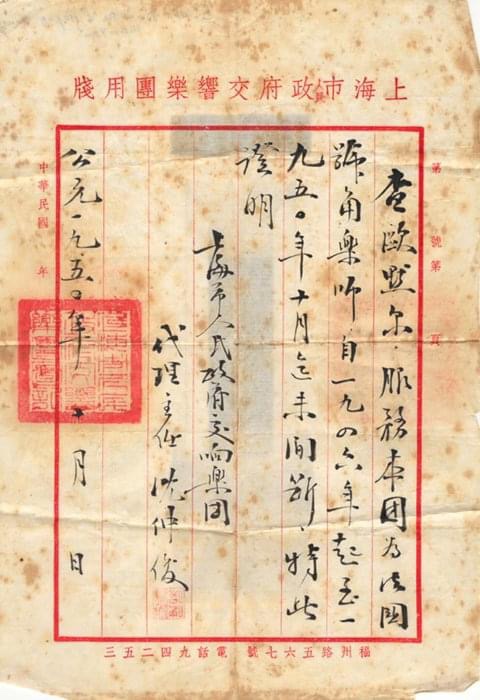 上海市人民政府交響樂團用牋
第 號第 頁
查歐默尔·服務本团为法國
號角樂师自一九四六年起至一
九五〇年十月迄未间断、特此
證明
上海市人民政府交响樂团
代理主任 沈仲俊
公元一九五〇年十月 日
中華民國 年
福州路五六七號 電話九四二五三